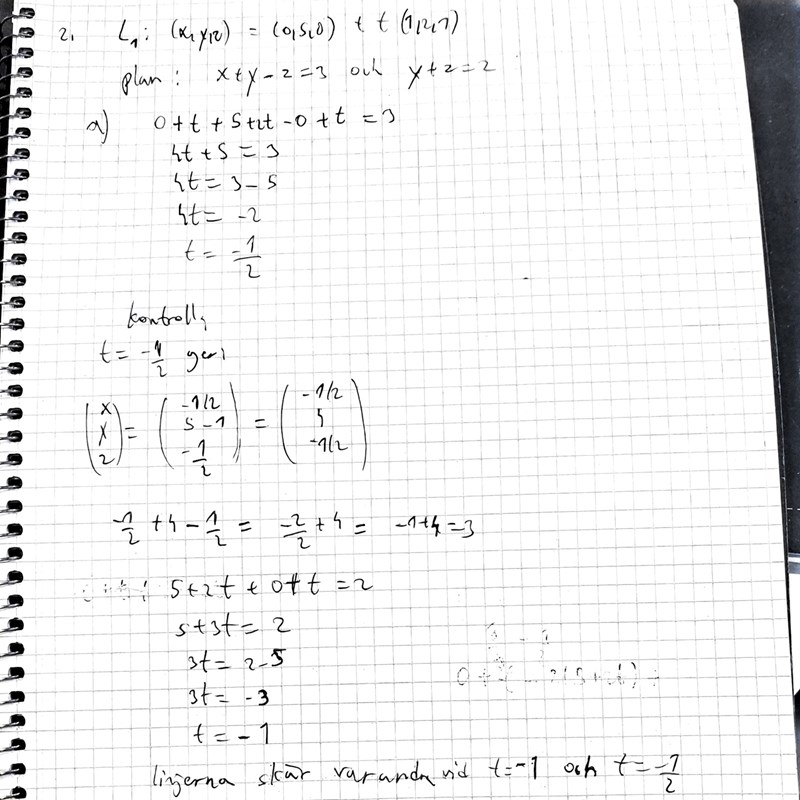 2. L₁: (x,y,z) = (0,5,0) + t (1,2,1)
plan: x+y-z=3 och y+z=2
a) 0+t+5+2t-0+t=3
4t+5=3
4t=3-5
4t=-2
t=-1/2
kontroll,
t=-1/2 ger:
(x y z) = (-1/2 5-1 -1/2) = (-1/2 4 -1/2)
-1/2+4-1/2 = -2/2+4 = -1+4=3
5+2t+0+t=2
5+3t=2
3t=2-5
3t=-3
t=-1
linjerna skär varandra vid t=-1 och t=-1/2